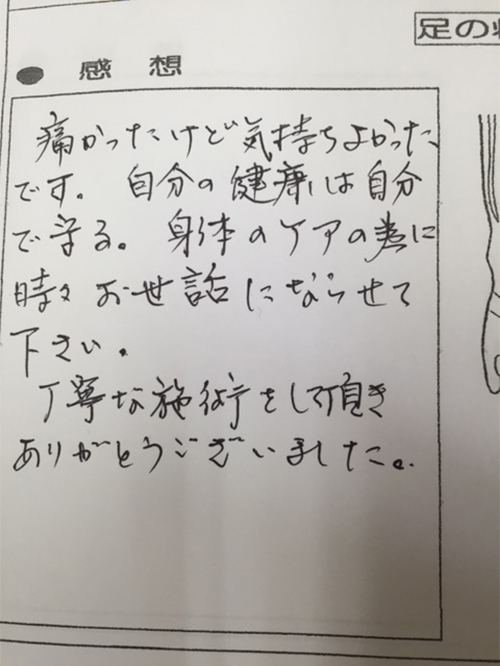 足の
● 感想
痛かったけど気持ちよかった
です。自分の健康は自分
で守る。身体のケアの為に
時々お世話にならせて
下さい。
丁寧な施術をして頂き
ありがとうございました。